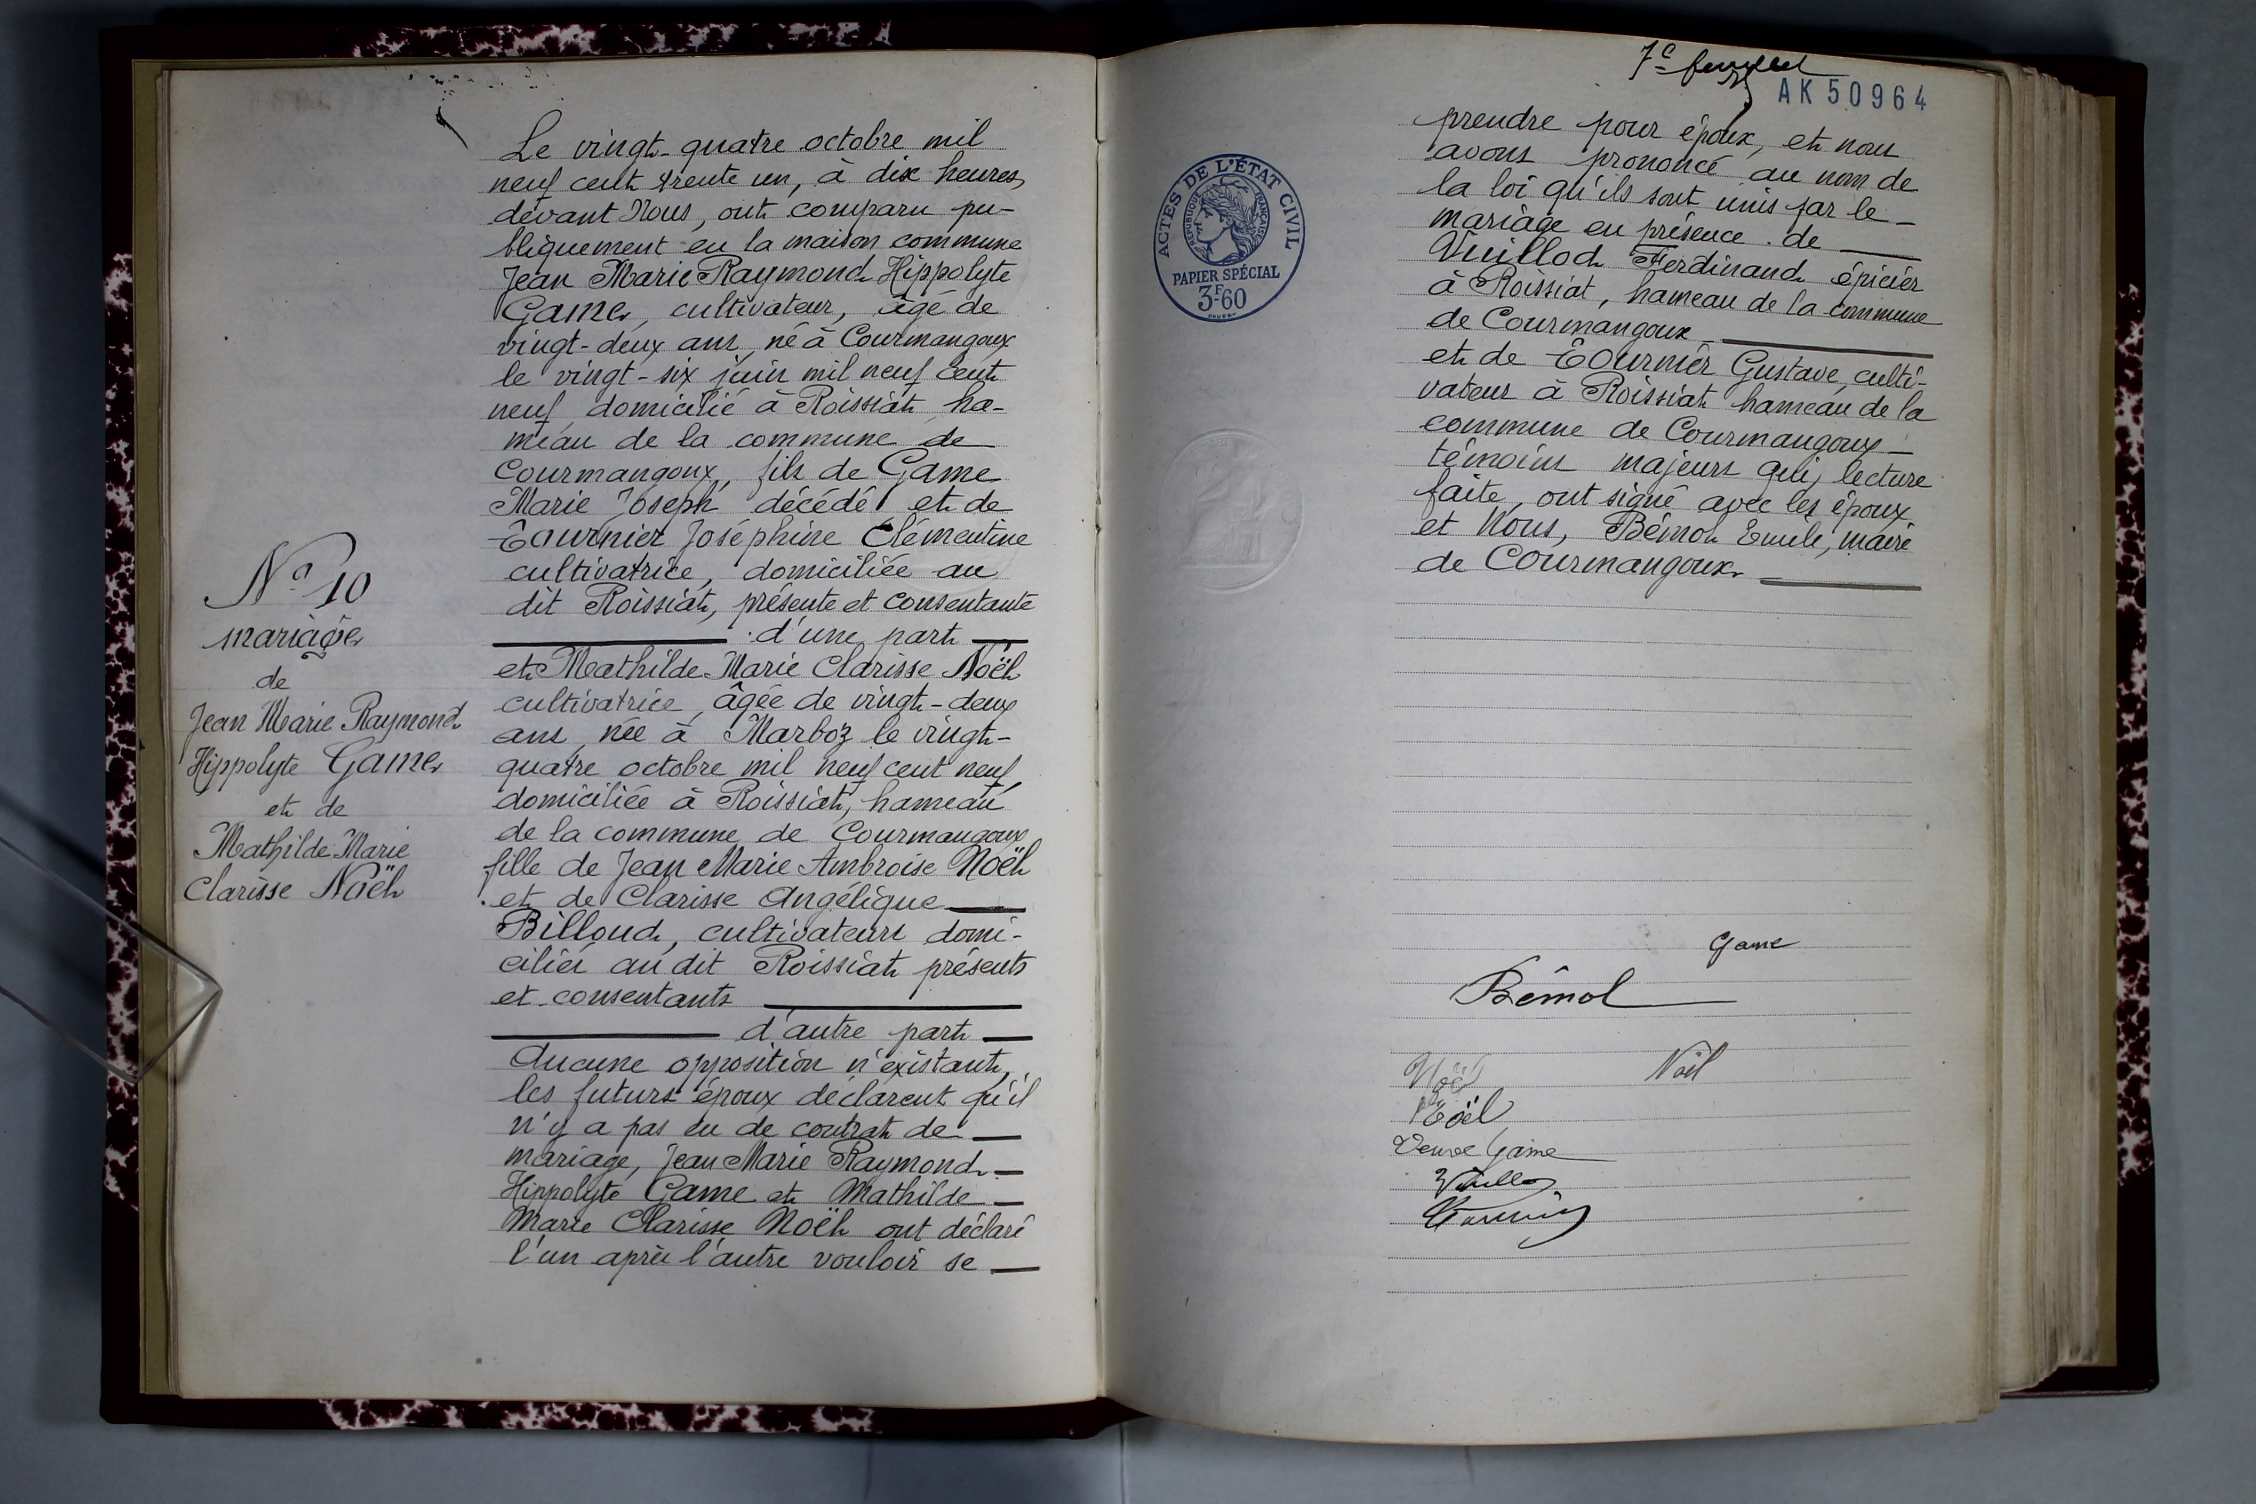 Le vingt-quatre octobre mil
neuf cent trente un, à dix heures
devant Nous, ont comparu pu-
bliquement en la maison commune
Jean Marie Raymond Hippolyte
Game, cultivateur, âgé de
vingt-deux ans, né à Courmangoux
le vingt-six juin mil neuf cent
neuf domicilié à Roissiat, ha-
meau de la commune de
Courmangoux, fils de Game
Marie Joseph décédé et de
Tournier Joséphine Clémentine
cultivatrice, domiciliée au
dit Roissiat, présente et consentante
d'une part
et Mathilde Marie Clarisse Noël
cultivatrice, âgée de vingt-deux
ans, née à Marboz le vingt-
quatre octobre mil neuf cent neuf,
domiciliée à Roissiat, hameau
de la commune de Courmangoux
fille de Jean Marie Ambroise Noël
et de Clarisse Angélique
Billoud, cultivateurs domi-
ciliés au dit Roissiat présents
et consentants
d'autre part
Aucune opposition n'existant,
les futurs époux déclarent qu'il
n'y a pas eu de contrat de
mariage, Jean Marie Raymond
Hippolyte Game et Mathilde
Marie Clarisse Noël ont déclaré
l'un après l'autre vouloir se
No 10
mariage
de
Jean Marie Raymond
Hippolyte Game
et de
Mathilde Marie
Clarisse Noël
7e feuillet
AK 50964
ACTES DE L'ÉTAT CIVIL
RÉPUBLIQUE FRANÇAISE
PAPIER SPÉCIAL
3F60
prendre pour époux, et nous
avons prononcé au nom de
la loi qu'ils sont unis par le
mariage en présence de
Vuillod Ferdinand épicier
à Roissiat, hameau de la commune
de Courmangoux
et de Tournier Gustave, culti-
vateur à Roissiat hameau de la
commune de Courmangoux
témoins majeurs qui, lecture
faite, ont signé avec les époux
et Nous, Bémol Emile, maire
de Courmangoux.
Game
Bémol
Noël
Noël
Noël
Veuve Game
Vuillod
Tournier